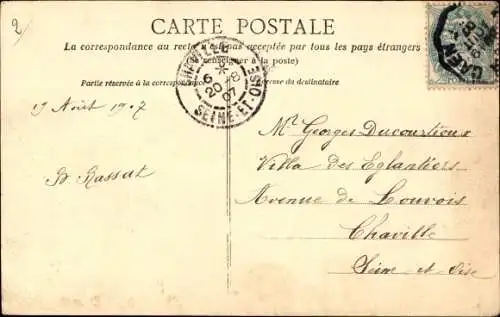 2
CARTE POSTALE
La correspondance au recto n'est pas acceptée par tous les pays étrangers
(se renseigner à la poste)
Partie réservée à la correspondance
Adresse du destinataire
CHAVILLE
6 *
20-8
07
SEINE-ET-OISE
CAEN
19 Août 1907
Mr Georges Ducourtioux
Villa des Eglantiers
Avenue de Louvois
Chaville
Seine et Oise